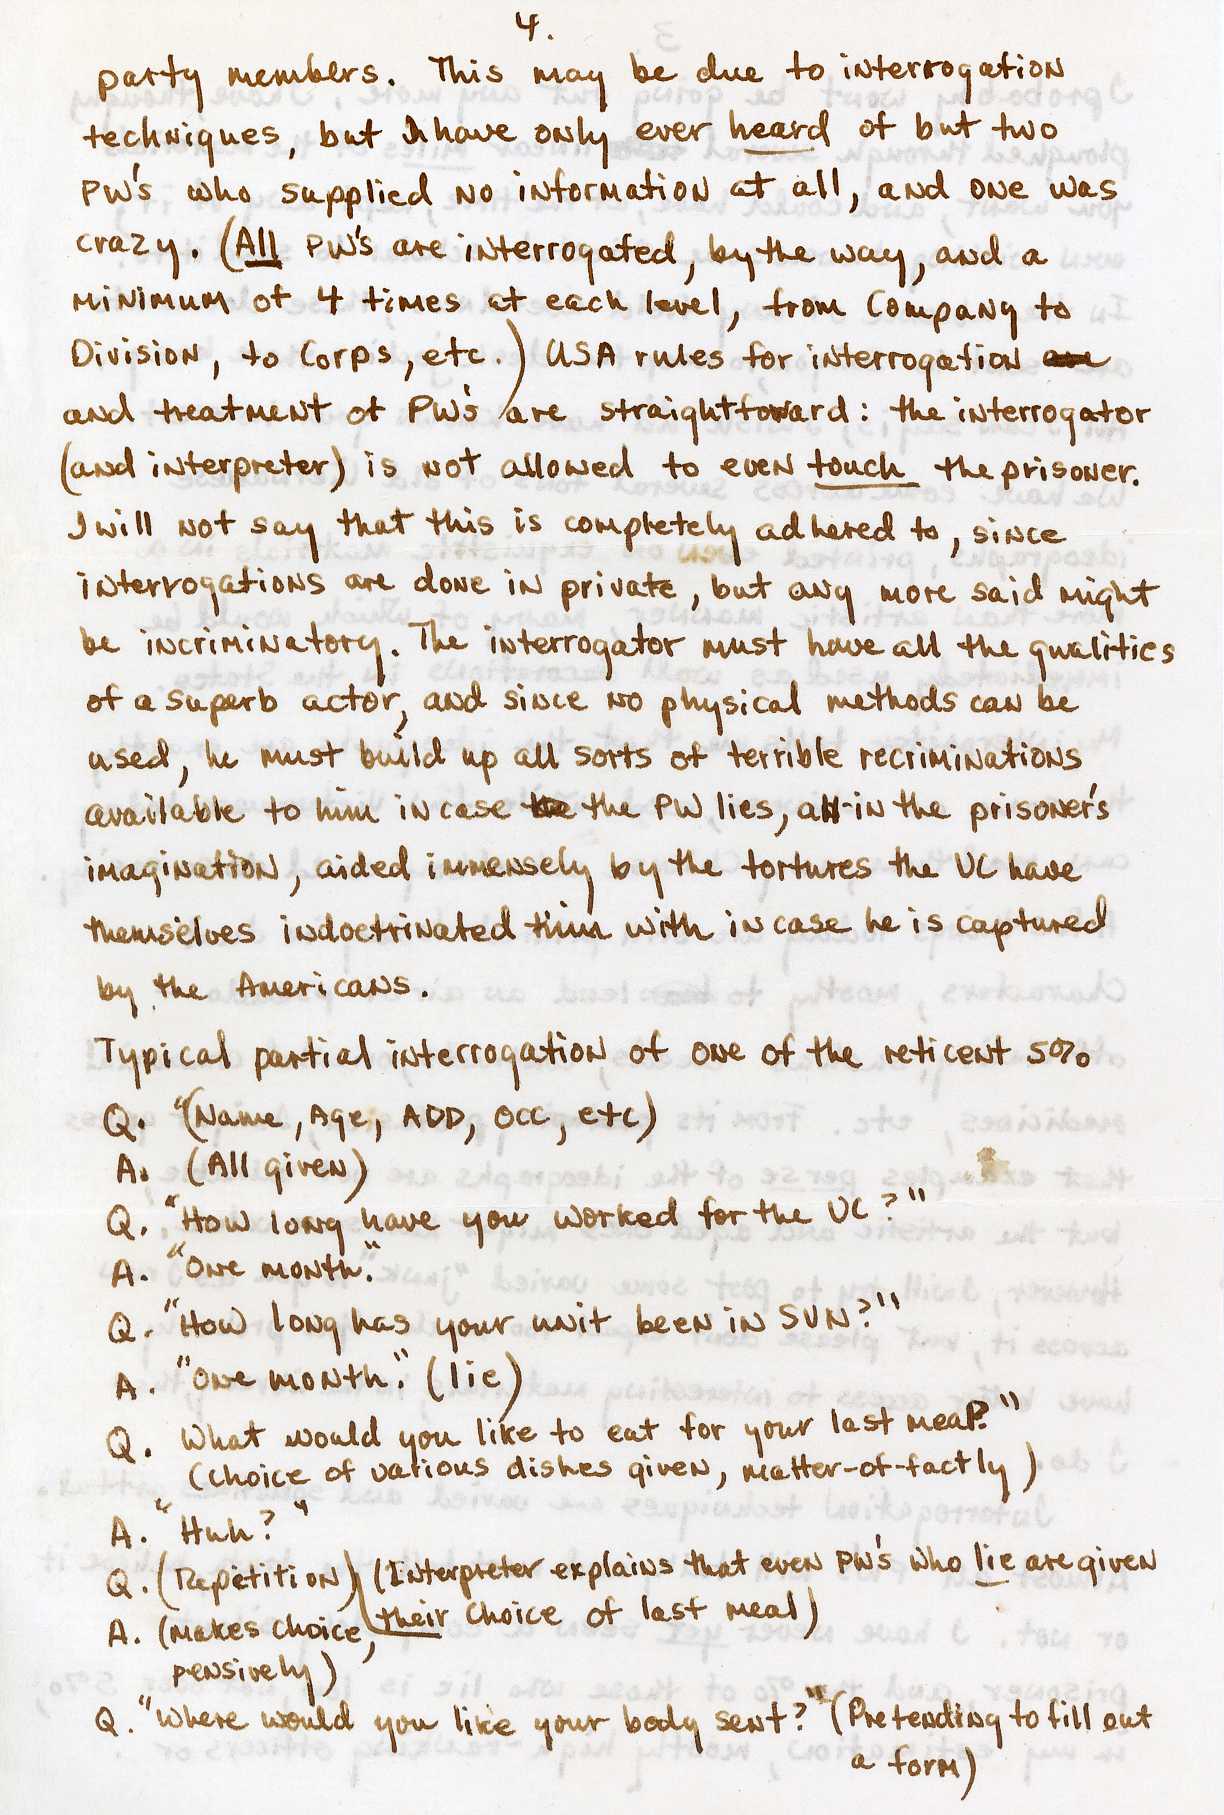 4.
party members. This may be due to interrogation
techniques, but I have only ever heard of but two
PW's who supplied no information at all, and one was
crazy. (All PW's are interrogated, by the way, and a
minimum of 4 times at each level, from Company to
Division, to Corps, etc.) USA rules for interrogation
and treatment of PW's are straightforward: the interrogator
(and interpreter) is not allowed to even touch the prisoner.
I will not say that this is completely adhered to, since
interrogations are done in private, but any more said might
be incriminatory. The interrogator must have all the qualities
of a superb actor, and since no physical methods can be
used, he must build up all sorts of terrible recriminations
available to him in case the PW lies, all in the prisoner's
imagination, aided immensely by the tortures the VC have
themselves indoctrinated him with in case he is captured
by the Americans.
Typical partial interrogation of one of the reticent 5%
Q. "(Name, Age, ADD, OCC, etc)
A. (All given)
Q. "How long have you worked for the VC?"
A. "One month."
Q. "How long has your unit been in SVN?"
A. "One month." (lie)
Q. What would you like to eat for your last meal?"
(choice of various dishes given, matter-of-factly)
A. "Huh?"
Q. (Repetition) (Interpreter explains that even PW's who lie are given
their choice of last meal)
A. (makes choice,
pensively)
Q. "Where would you like your body sent?" (Pretending to fill out
a form)